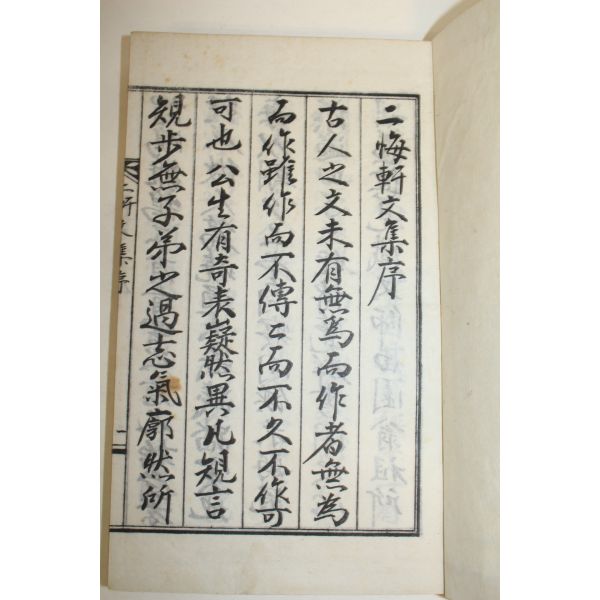 二悔軒文集序
古人之文未有無爲而作者無爲
而作雖作而不傳〻而不久不作可
可也 公生有奇表嶷然異凡規言
規步無子弟之過志氣廓然所
二軒文集序
二